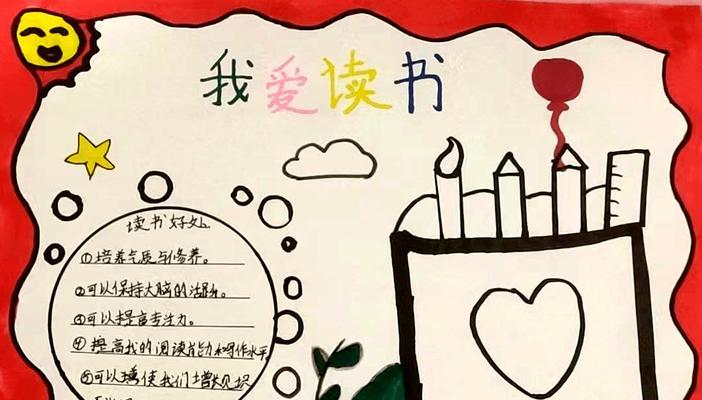 我爱读书
读书好处
①培养气质与修养。
②可以保持大脑的活跃。
③可以提高专注力。
④提高我的阅读能力和写作水平
⑤可以使我们增长见识